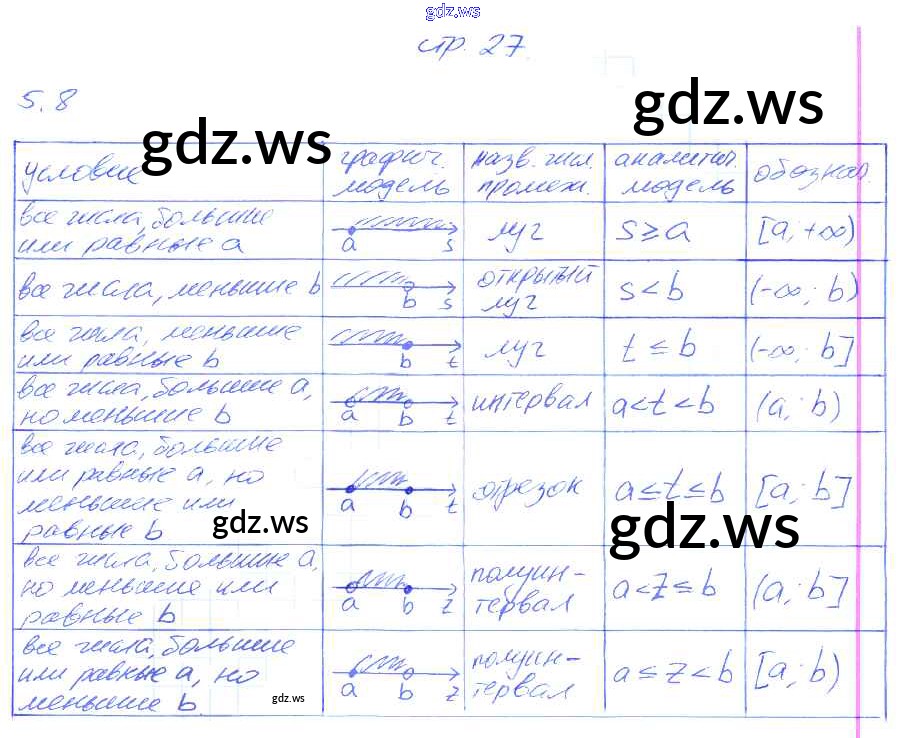 gdz.ws
стр. 27.
5.8
gdz.ws
gdz.ws
условие
графич. модель
назв. чил. промеж.
аналитич. модель
обознач.
все числа, большие
или равные a
a s
луч
s ≥ a
[a, +∞)
все числа, меньшие b
b s
открытый
луч
s < b
(-∞; b)
все числа, меньшие
или равные b
b t
луч
t ≤ b
(-∞; b]
все числа, большие a,
но меньшие b
a b t
интервал
a < t < b
(a; b)
все числа, большие
или равные a, но
меньшие или
равные b
a b t
отрезок
a ≤ t ≤ b
[a; b]
gdz.ws
gdz.ws
все числа, большие a,
но меньшие или
равные b
a b z
полуин-
тервал
a < z ≤ b
(a; b]
все числа, большие
или равные a, но
меньшие b
a b z
полуин-
тервал
a ≤ z < b
[a; b)
gdz.ws